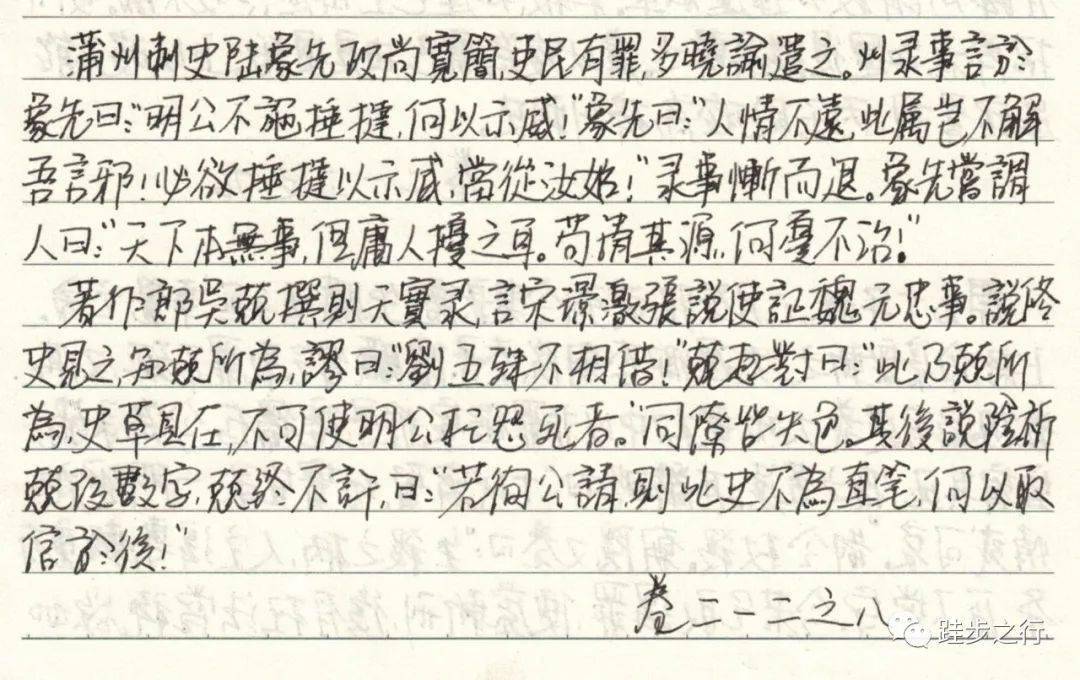 蒲州刺史陆象先政尚寬簡,吏民有罪,多曉諭遣之。州录事言於
象先曰:“明公不施捶撻,何以示威!”象先曰:“人情不遠,此属岂不解
吾言邪!必欲捶撻以示威,當從汝始!”录事慚而退。象先嘗謂
人曰:“天下本無事,但庸人擾之耳。苟清其源,何憂不治!”
著作郎吳兢撰則天實录,言宋璟激張說使証魏元忠事。說修
史見之,知兢所為,謬曰:“劉五殊不相借!”兢起對曰:“此乃兢所
為,史草具在,不可使明公枉怨死者。”同僚皆失色。其後說陰祈
兢改數字,兢終不許,曰:“若徇公請,則此史不為直笔,何以取
信於後!”
卷二一二之八
跬步之行